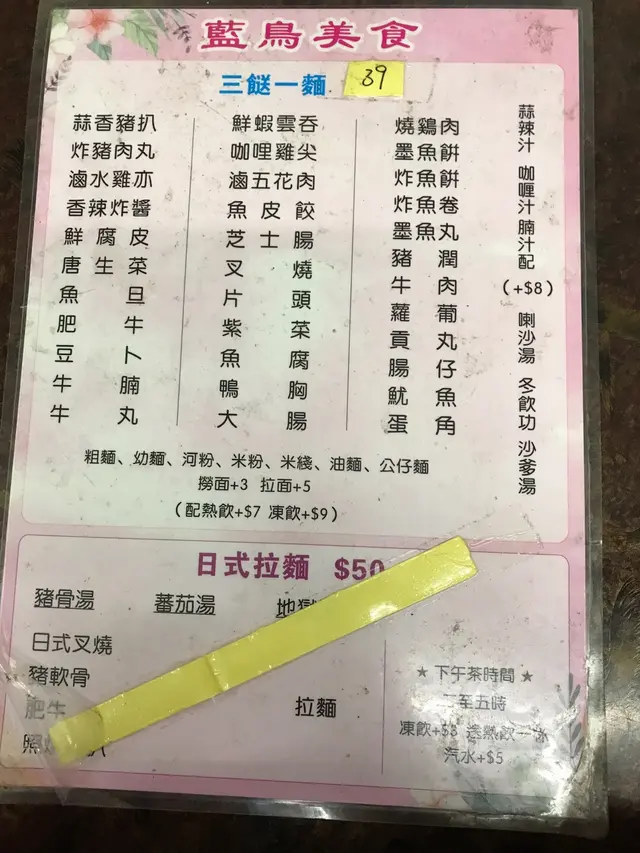 藍鳥美食
三餸一麵 39
蒜香豬扒
炸豬肉丸
滷水雞亦
香辣炸醬
鮮腐皮
唐生菜
魚旦
肥牛
豆卜
牛腩
牛丸
鮮蝦雲吞
咖哩雞尖
滷五花肉
魚皮餃
芝士腸
叉燒
片頭
紫菜
魚腐
鴨胸
大腸
燒鷄肉
墨魚餅
炸魚餅
炸魚卷
墨魚丸
豬潤
牛肉
蘿葡
貢丸
腸仔
魷魚
蛋角
蒜辣汁 咖喱汁腩汁配
(+$8)
喇沙湯 冬飲功 沙爹湯
粗麵、幼麵、河粉、米粉、米綫、油麵、公仔麵
撈面+3 拉面+5
(配熱飲+$7 凍飲+$9)
日式拉麵 $50
豬骨湯 蕃茄湯 地獄
日式叉燒
豬軟骨
肥牛
拉麵
★ 下午茶時間 ★
二至五時
凍飲+$3 送熱飲一杯
汽水+$5